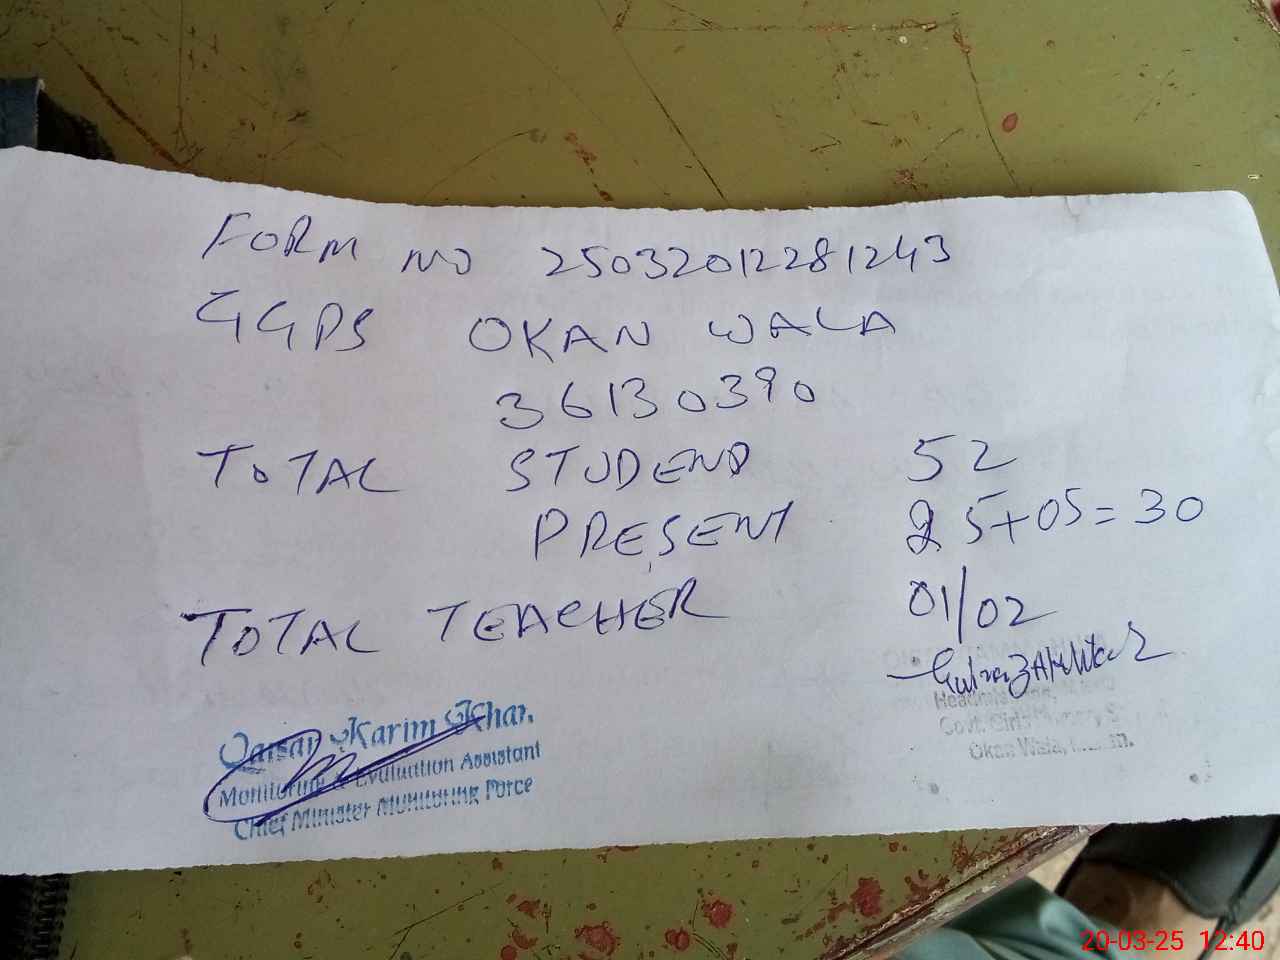 FORM NO 25032012281243
GGPS OKAN WALA
36130390
TOTAL STUDEND 52
PRESENT 25+05=30
TOTAL TEACHER 01/02
Qaisar Karim Khan
Monitoring & Evaluation Assistant
Chief Minister Monitoring Force
Headmistress,
Govt. Girls Primary S
Okan Wala,
20-03-25 12:40